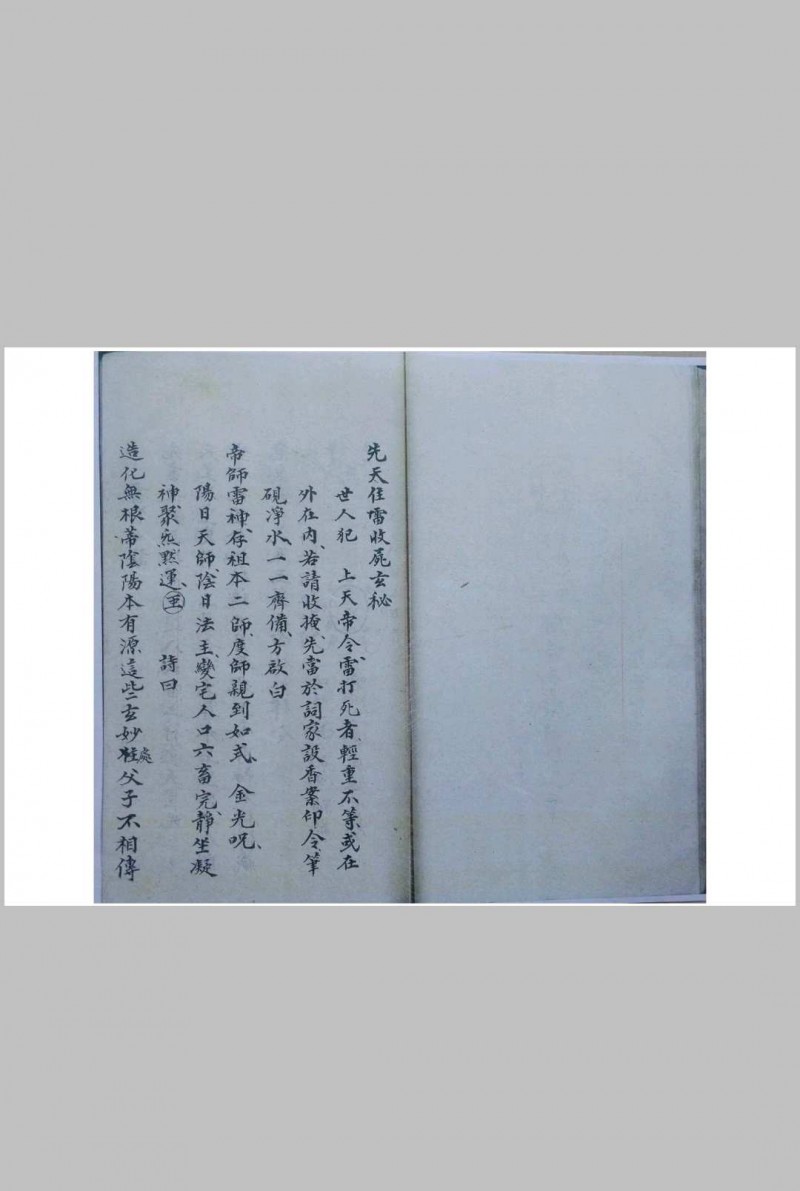 先天住雷收屍玄秘
世人犯　上天帝令雷打死者、輕重不等、或在
外在內、若請收掩、先當於詞家設香案印令筆
硯淨水、一一齊備、方啟白
帝師雷神、存祖本二師、度師親到如式、　金光呪、
陽日天師、陰日法主、變宅人口六畜完、靜坐凝
神聚炁默運、　詩曰
造化無根蒂陰陽本有源這些玄妙處父子不相傳